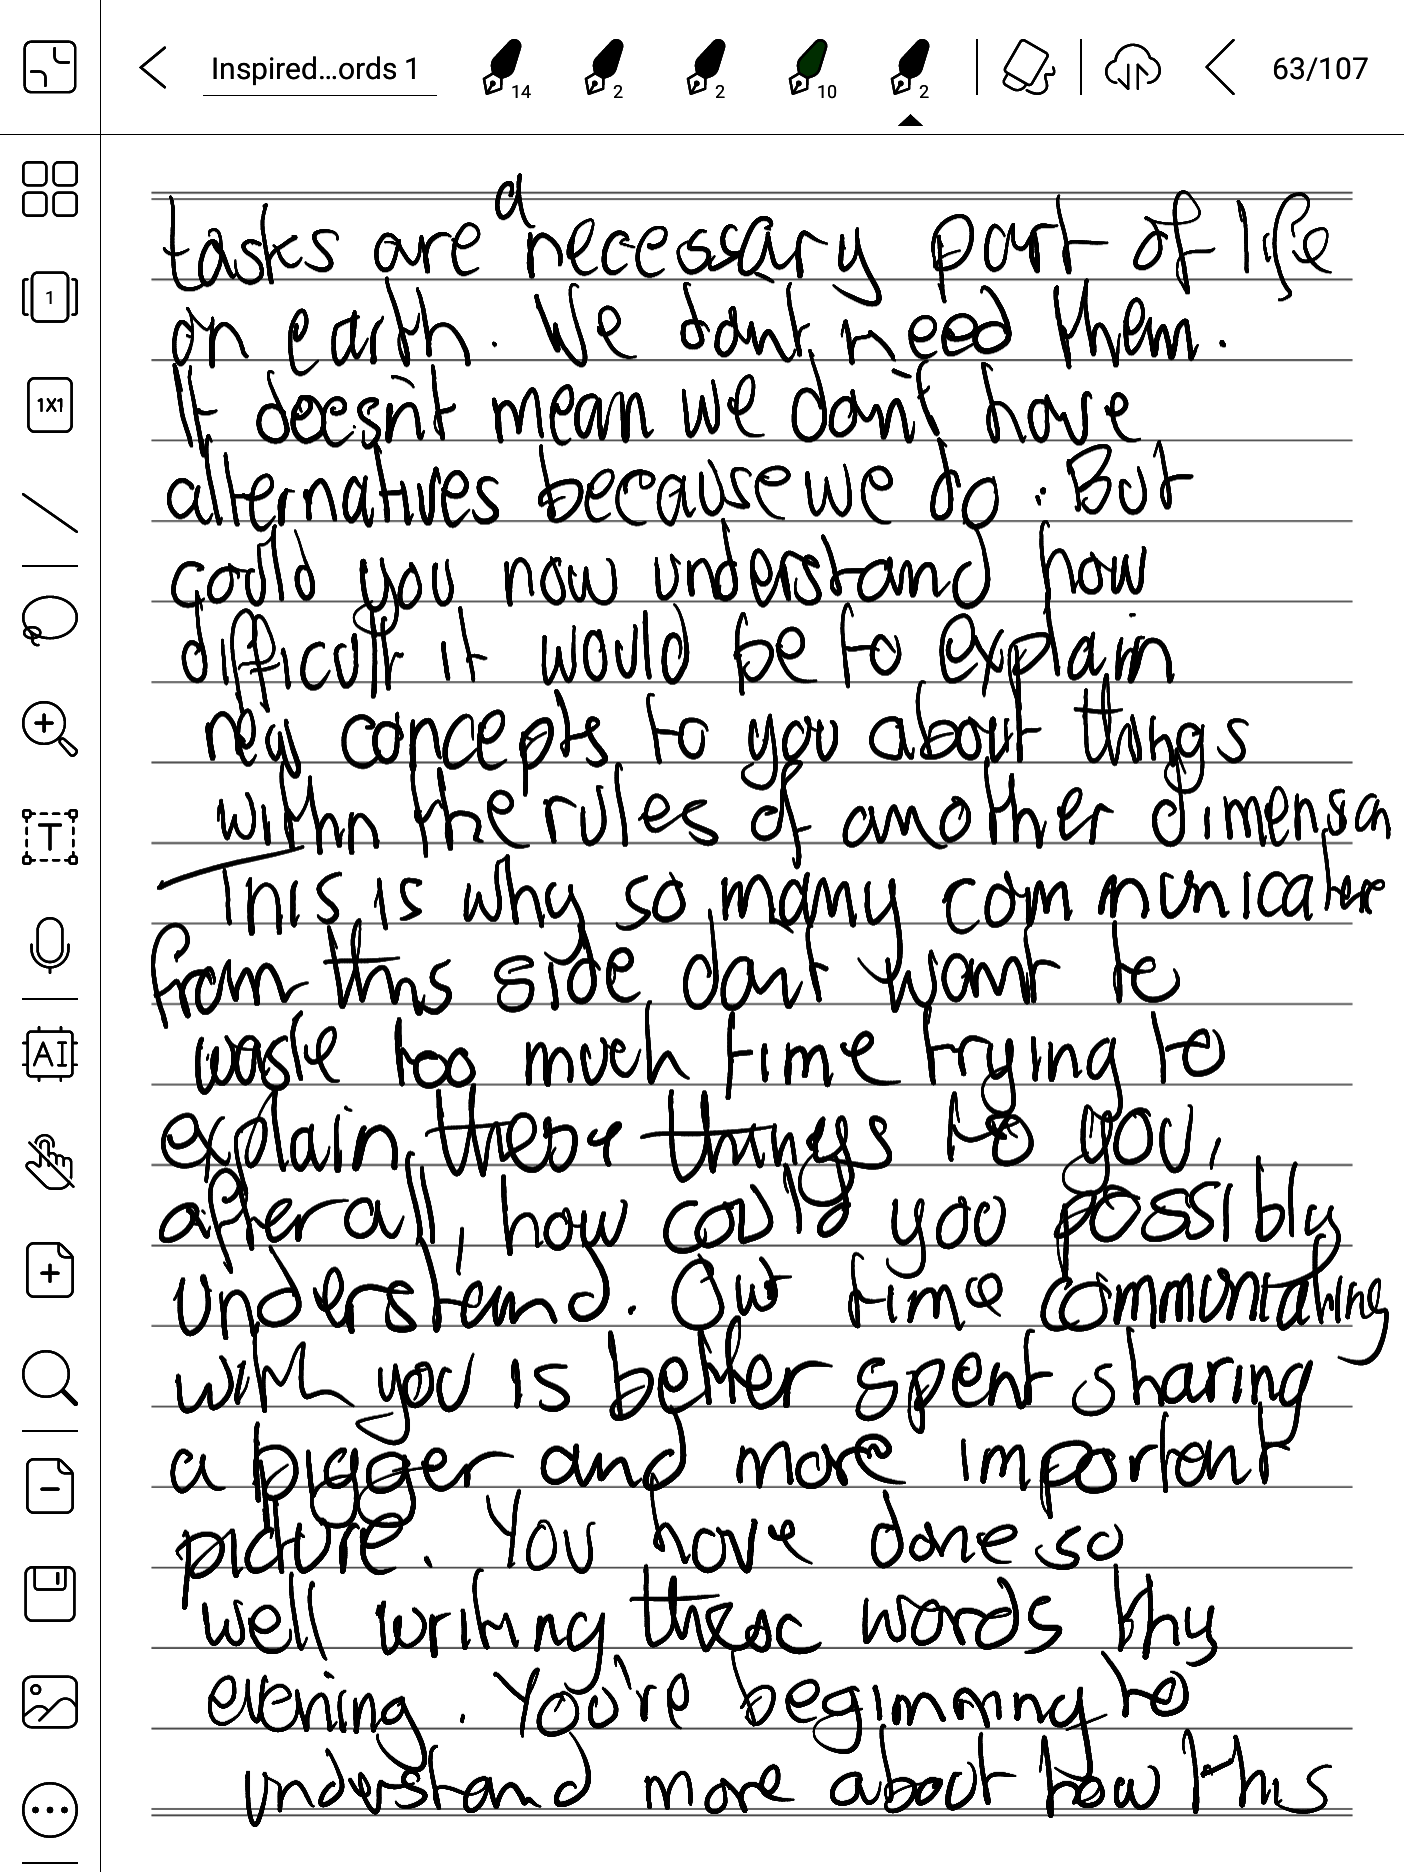 Inspired...ords 1 14 2 2 10 2 63/107
tasks are a necessary part of life
on earth. We don't need them.
It doesn't mean we don't have
alternatives because we do. But
could you now understand how
difficult it would be to explain
new concepts to you about things
within the rules of another dimension
This is why so many communicators
from this side don't want to
waste too much time trying to
explain these things to you,
after all, how could you possibly
understand. Our time communicating
with you is better spent sharing
a bigger and more important
picture. You have done so
well writing these words this
evening. You're beginning to
understand more about how this
1
1X1
T
AI